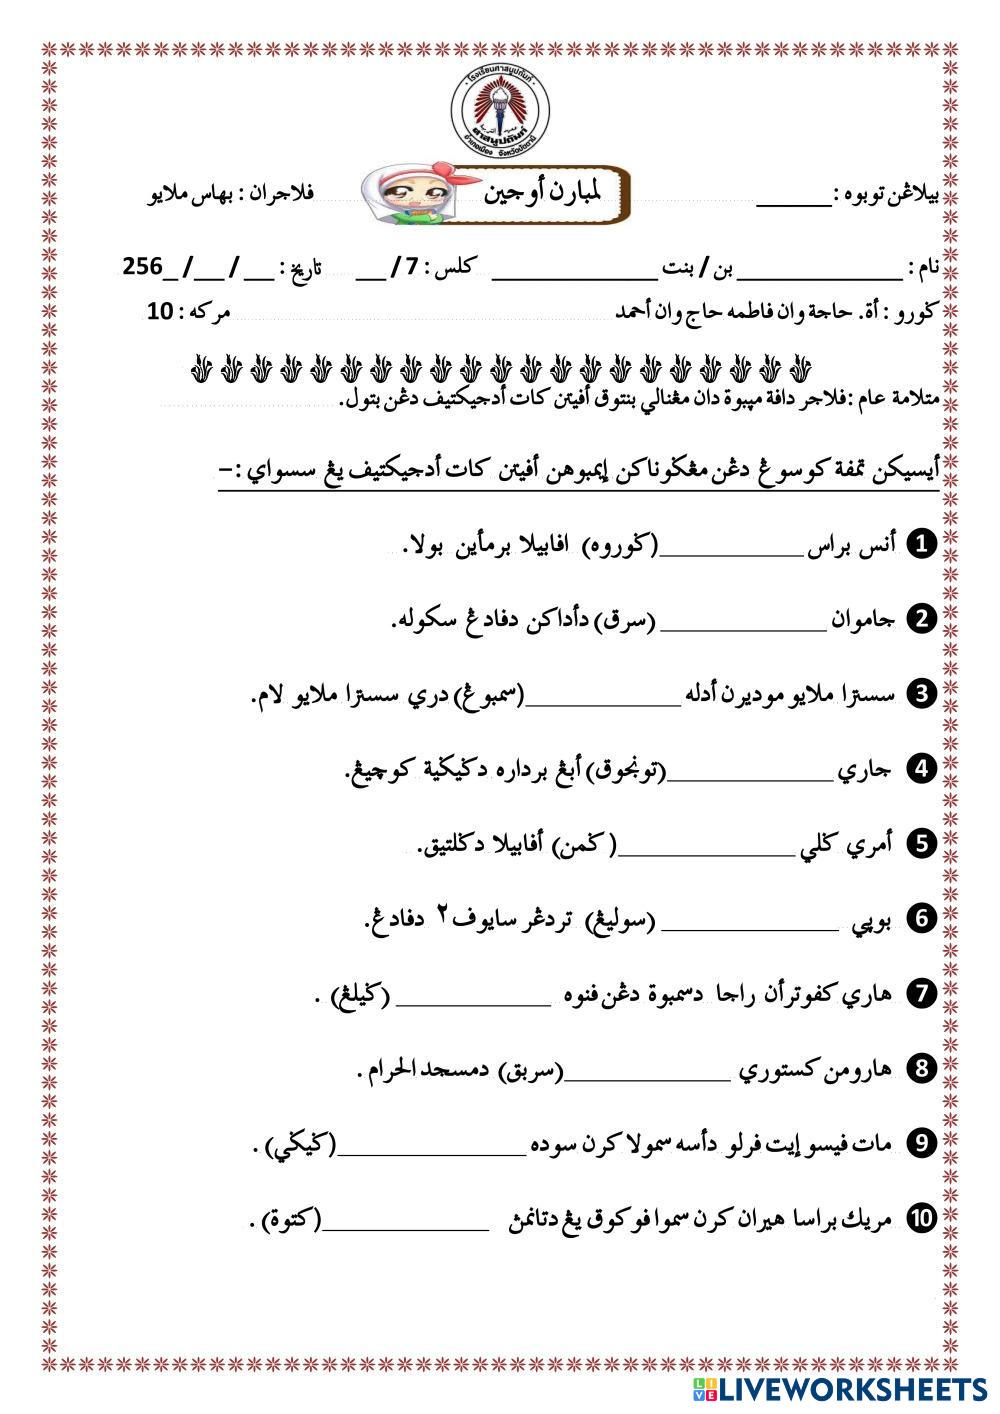 โรงเรียนศาสนูปถัมภ์
ศาสนูปถัมภ์
อำเภอเมือง จังหวัดปัตตานี
بيلاڠن توبوه : ______ لمبارن أوجين فلاجران : بهاس ملايو
نام : ____________ بن / بنت ____________ كلس : 7 / __ تاريخ : __ / __ / _256
ݢورو : أة. حاجة وان فاطمه حاج وان أحمد مركه : 10
متلامة عام : فلاجر دافة مپبوة دان مڠنالي بنتوق أفيتن كات أدجيكتيف دڠن بتول.
أيسيكن تمفة كوسوڠ دڠن مڠݢوناكن إيمبوهن أفيتن كات أدجيكتيف يڠ سسواي :-
1 أنس براس ____________(ݢوروه) افابيلا برمأين بولا.
2 جاموان ____________ (سرق) دأداكن دفادڠ سكوله.
3 سسترا ملايو موديرن أدله ____________(سمبوڠ) دري سسترا ملايو لام.
4 جاري ____________(تونجوق) أبڠ برداره دݢيݢية كوچيڠ.
5 أمري ݢلي ____________( ݢمن) أفابيلا دݢلتيق.
6 بوپي ____________ (سوليڠ) تردڠر سايوف٢ دفادڠ.
7 هاري كفوترأن راجا دسمبوة دڠن فنوه ____________ (ݢيلڠ) .
8 هارومن كستوري ____________(سربق) دمسجد الحرام .
9 مات فيسو إيت فرلو دأسه سمولا كرن سوده ____________(ݢيݢي) .
10 مريك براسا هيران كرن سموا فوكوق يڠ دتانمڽ ____________(كتوة) .
LIVEWORKSHEETS